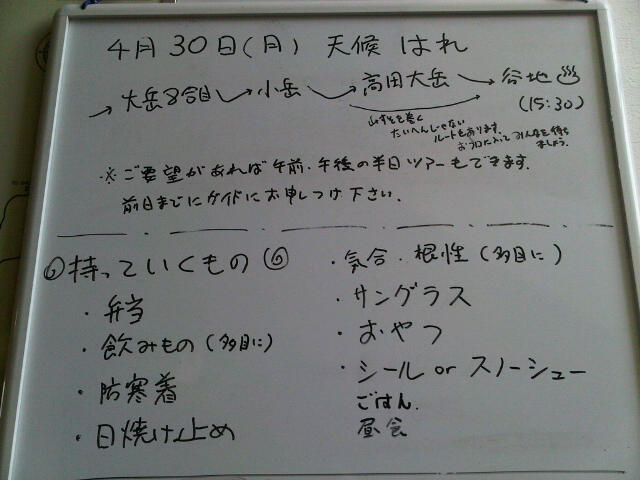 4月30日(月) 天候 はれ
→ 大岳8合目 → 小岳 → 高田大岳 → 谷地♨
(15:30)
山すそを巻く
たいへんじゃない
ルートもあります。
お風呂に入って みんなを待ち
ましょう。
※ ご要望があれば午前、午後の半日ツアーもできます。
前日までにガイドにお申しつけ下さい。
◎持っていくもの◎
・弁当
・飲みもの(多目に)
・防寒着
・日焼け止め
・気合・根性(多目に)
・サングラス
・おやつ
・シール or スノーシュー
ごはん.
昼食